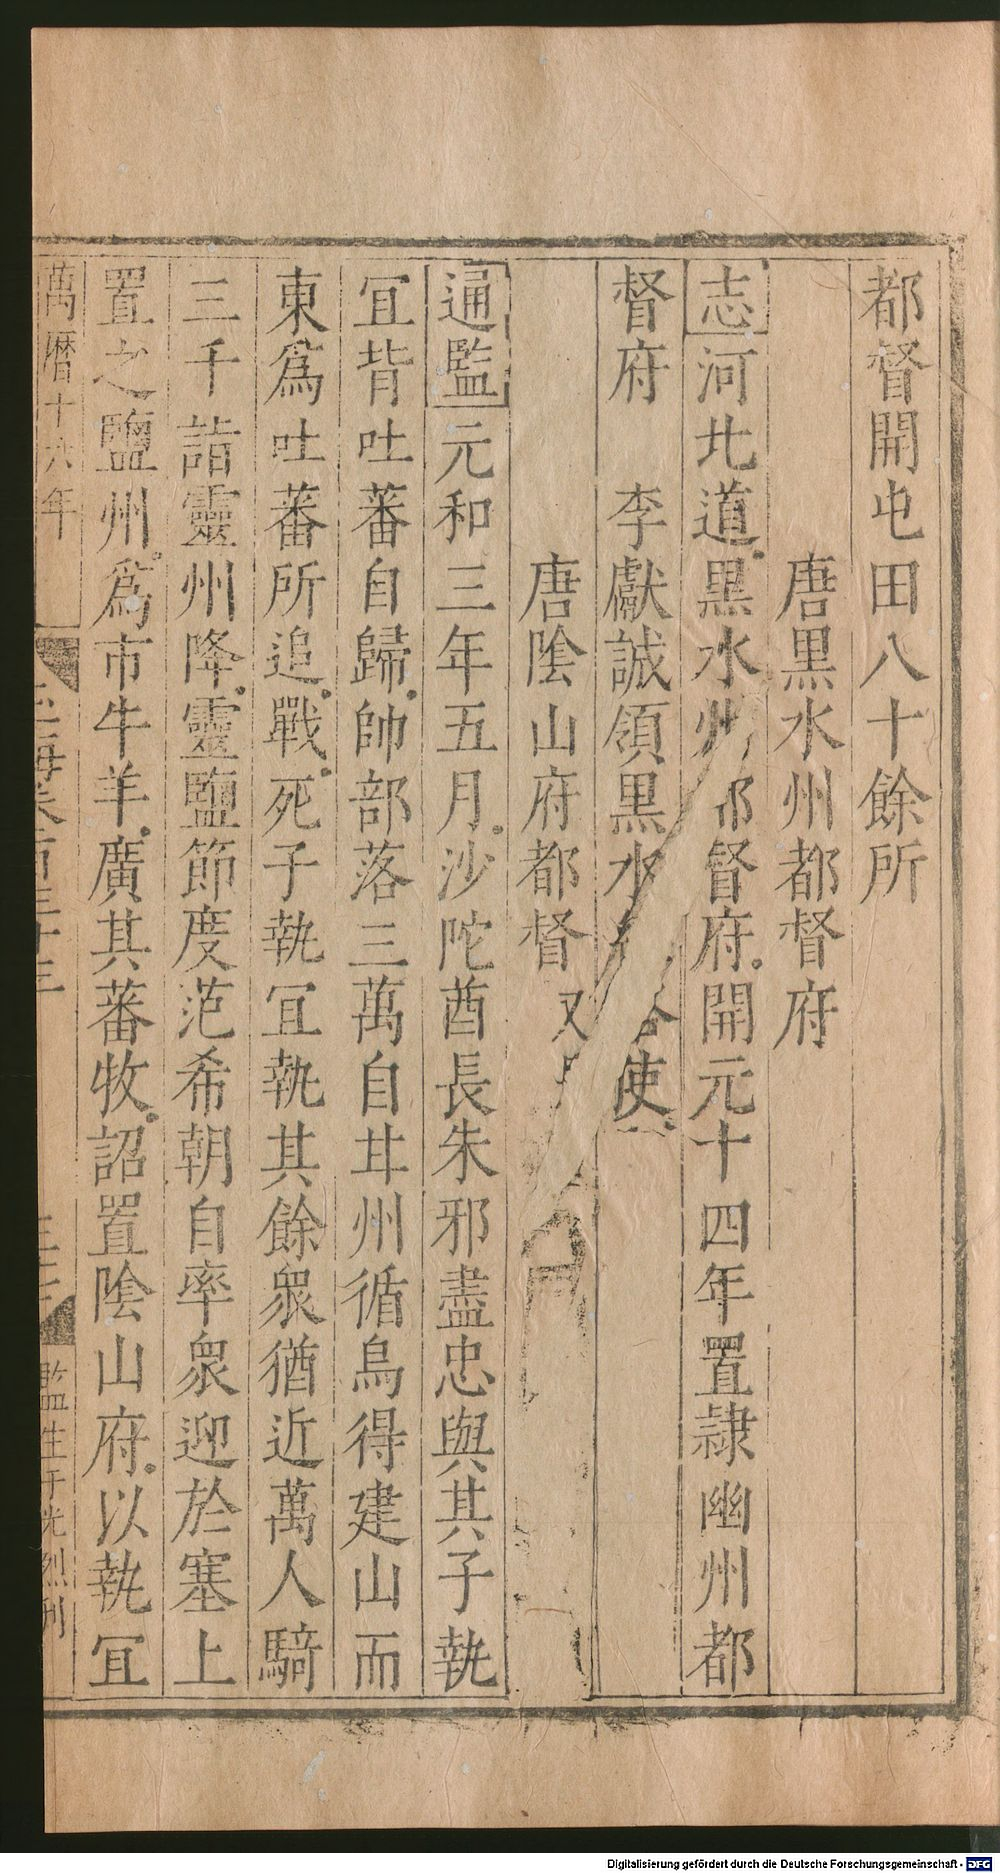 都督開屯田八十餘所
唐黒水州都督府
志河北道黒水州都督府開元十四年置隷幽州都
督府 李獻誠領黒水 使
唐陰山府都督
通監元和三年五月沙陀酋長朱邪盡忠與其子執
宜背吐蕃自歸帥部落三萬自甘州循烏得建山而
東爲吐蕃所追戰死子執宜執其餘衆猶近萬人騎
三千詣靈州降靈鹽節度范希朝自率衆迎於塞上
置之鹽州爲市牛羊廣其蕃牧詔置陰山府以執宜
萬曆十六年
玉海卷百三十三
監生于光烈刊
Digitalisierung gefördert durch die Deutsche Forschungsgemeinschaft - DFG